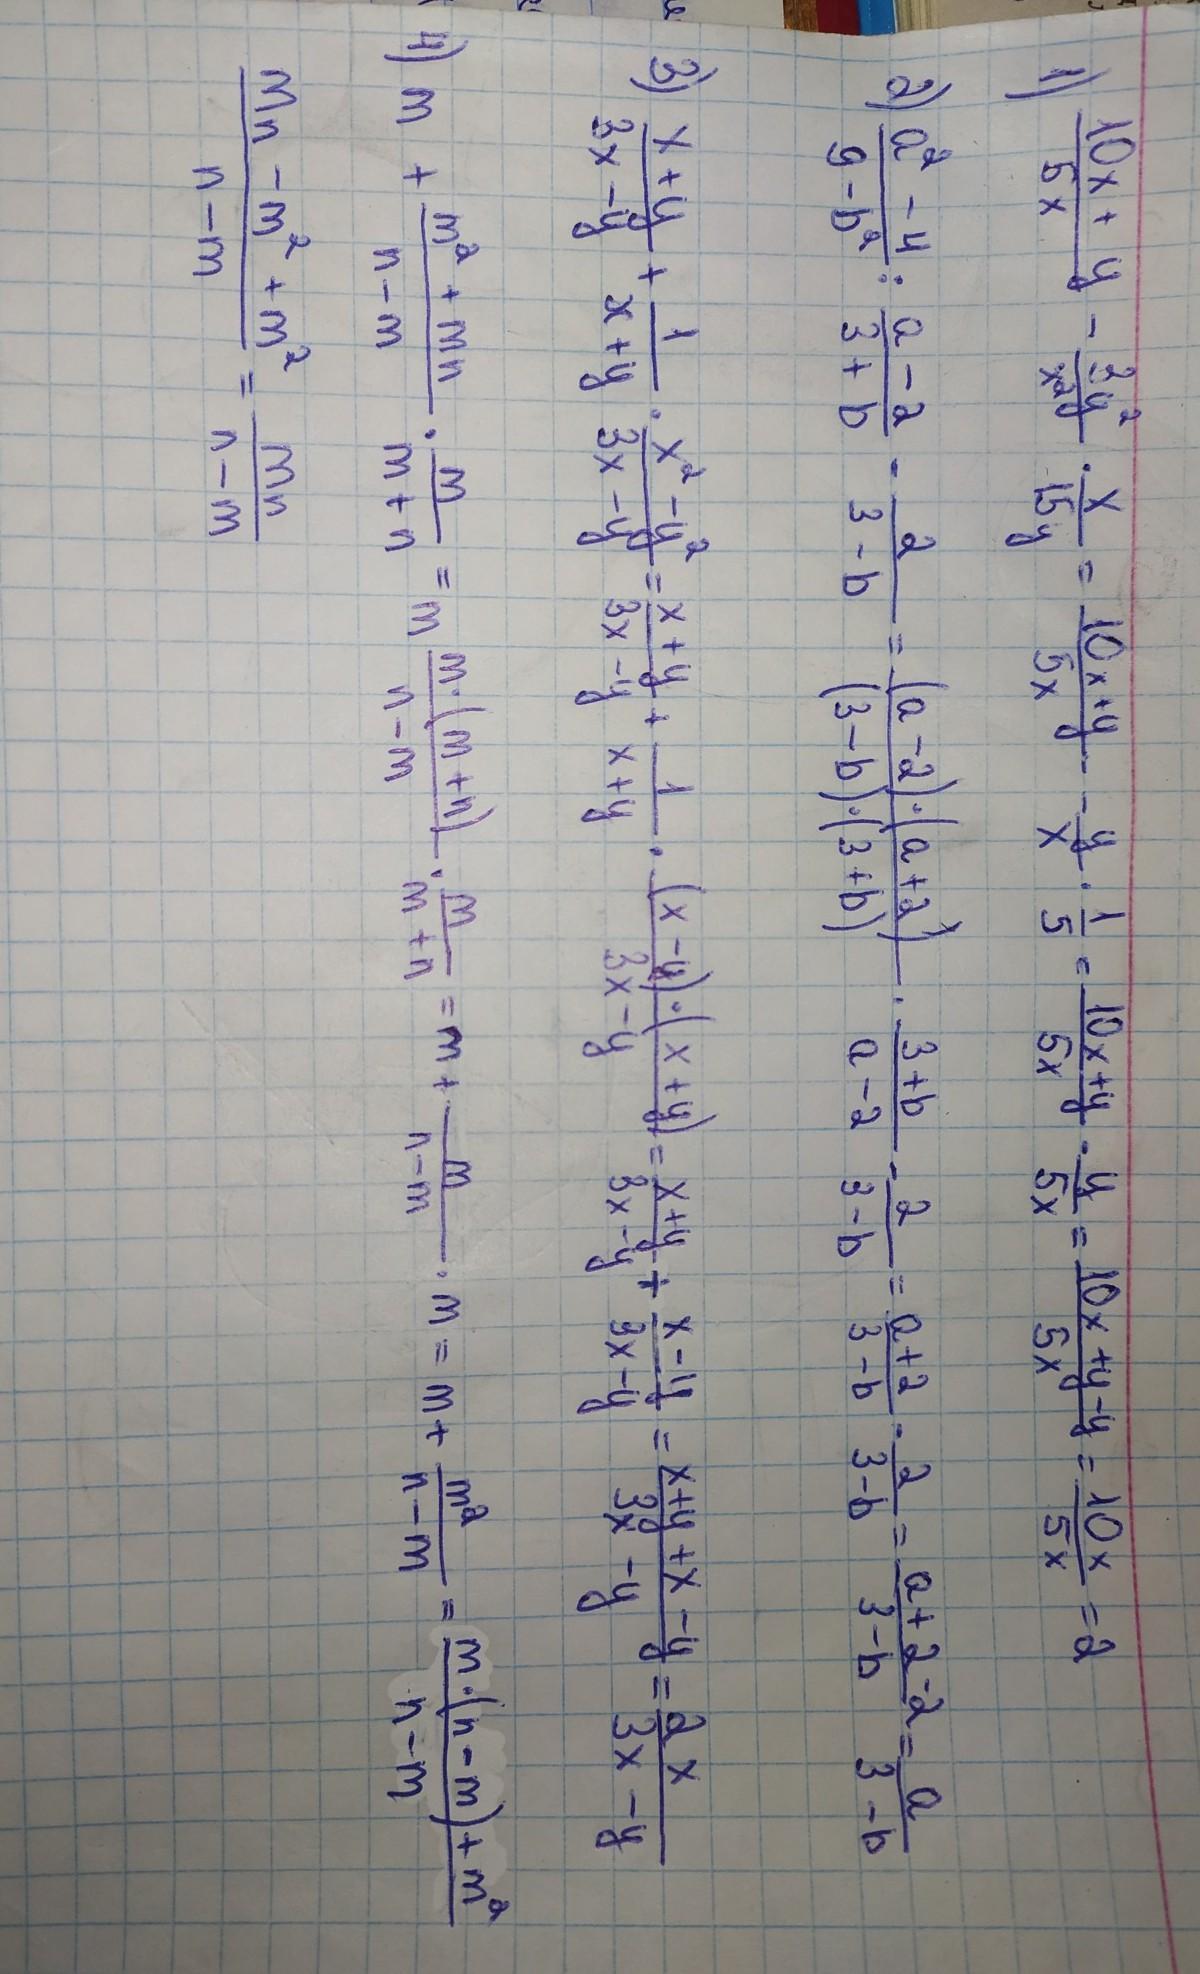 1) (10x+y)/(5x) - (3y²)/(x²y) · x/(15y) = (10x+y)/(5x) - y/x · 1/5 = (10x+y)/(5x) - y/(5x) = (10x+y-y)/(5x) = (10x)/(5x) = 2
2) (a²-4)/(9-b²) : (a-2)/(3+b) - 2/(3-b) = ((a-2)·(a+2))/((3-b)·(3+b)) · (3+b)/(a-2) - 2/(3-b) = (a+2)/(3-b) - 2/(3-b) = (a+2-2)/(3-b) = a/(3-b)
3) (x+y)/(3x-y) + 1/(x+y) · (x²-y²)/(3x-y) = (x+y)/(3x-y) + 1/(x+y) · ((x-y)·(x+y))/(3x-y) = (x+y)/(3x-y) + (x-y)/(3x-y) = (x+y+x-y)/(3x-y) = (2x)/(3x-y)
4) m + (m²+mn)/(n-m) · m/(m+n) = m (m·(m+n))/(n-m) · m/(m+n) = m + m/(n-m) · m = m + m²/(n-m) = (m·(n-m)+m²)/(n-m)
(mn-m²+m²)/(n-m) = (mn)/(n-m)